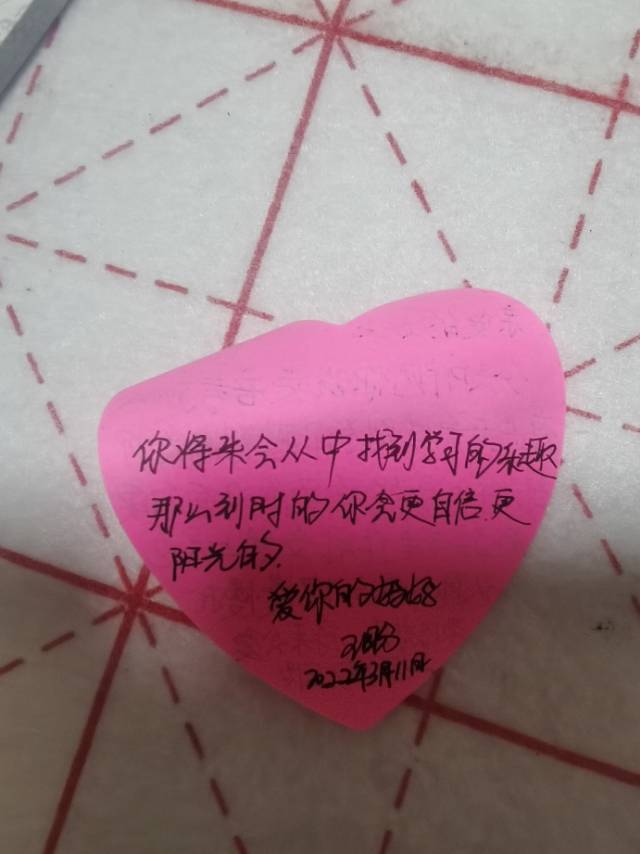 你将来会从中找到学习的乐趣
那么到时的你会更自信.更
阳光的.
爱你的妈妈
2022年3月11日